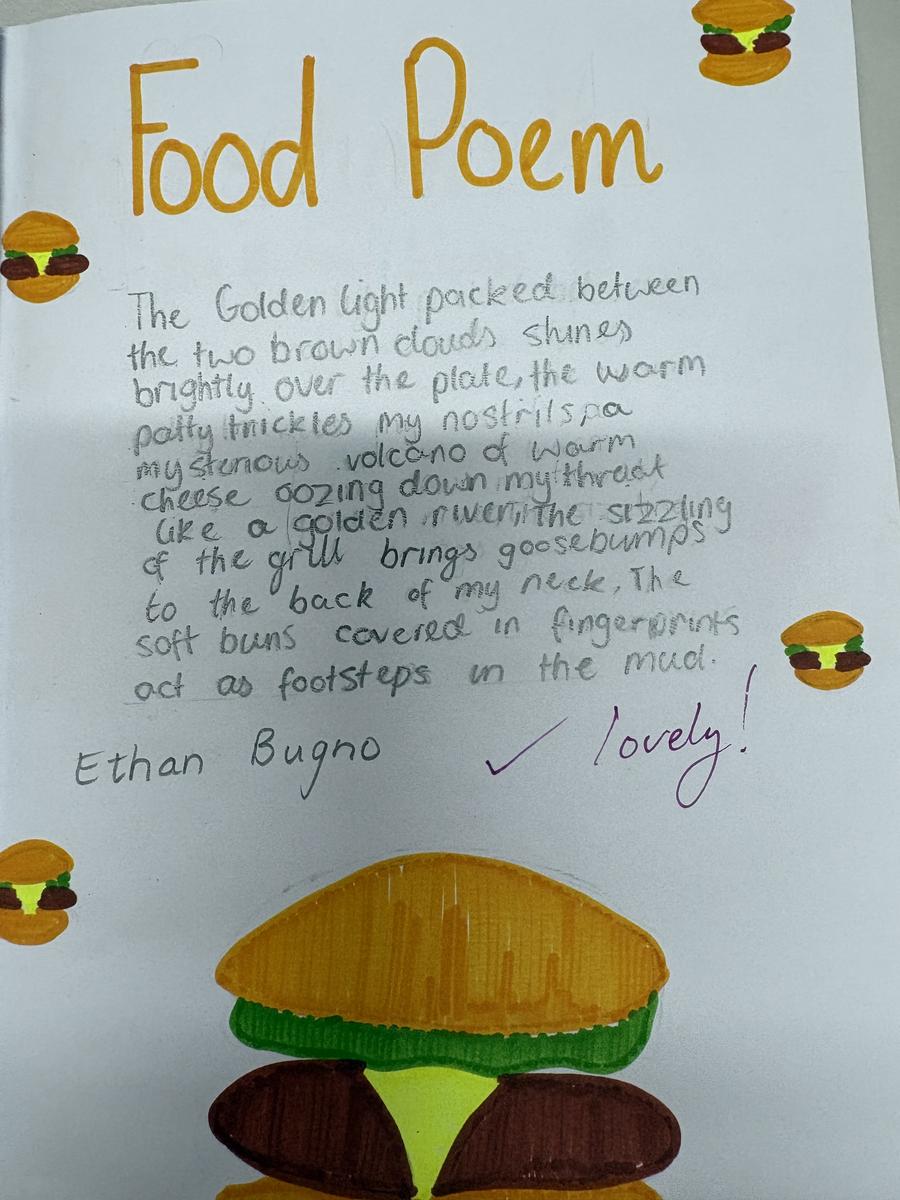 Food Poem
The Golden light packed between
the two brown clouds shines
brightly over the plate, the warm
patty trickles my nostrils, a
mysterious volcano of warm
cheese oozing down my throat
like a golden river, The sizzling
of the grill brings goosebumps
to the back of my neck, The
soft buns covered in fingerprints
act as footsteps in the mud.
Ethan Bugno ✓ lovely!